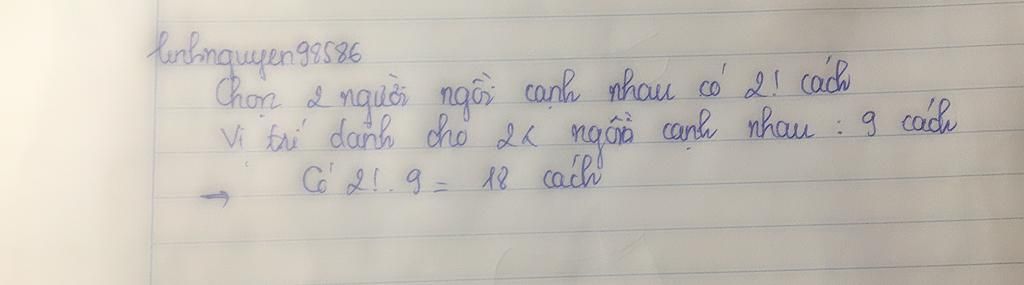 linhnguyen98586
Chọn 2 người ngồi cạnh nhau có 2! cách
Vị trí dành cho 2 ngồi cạnh nhau : 9 cách
→ Có 2! . 9 = 18 cách